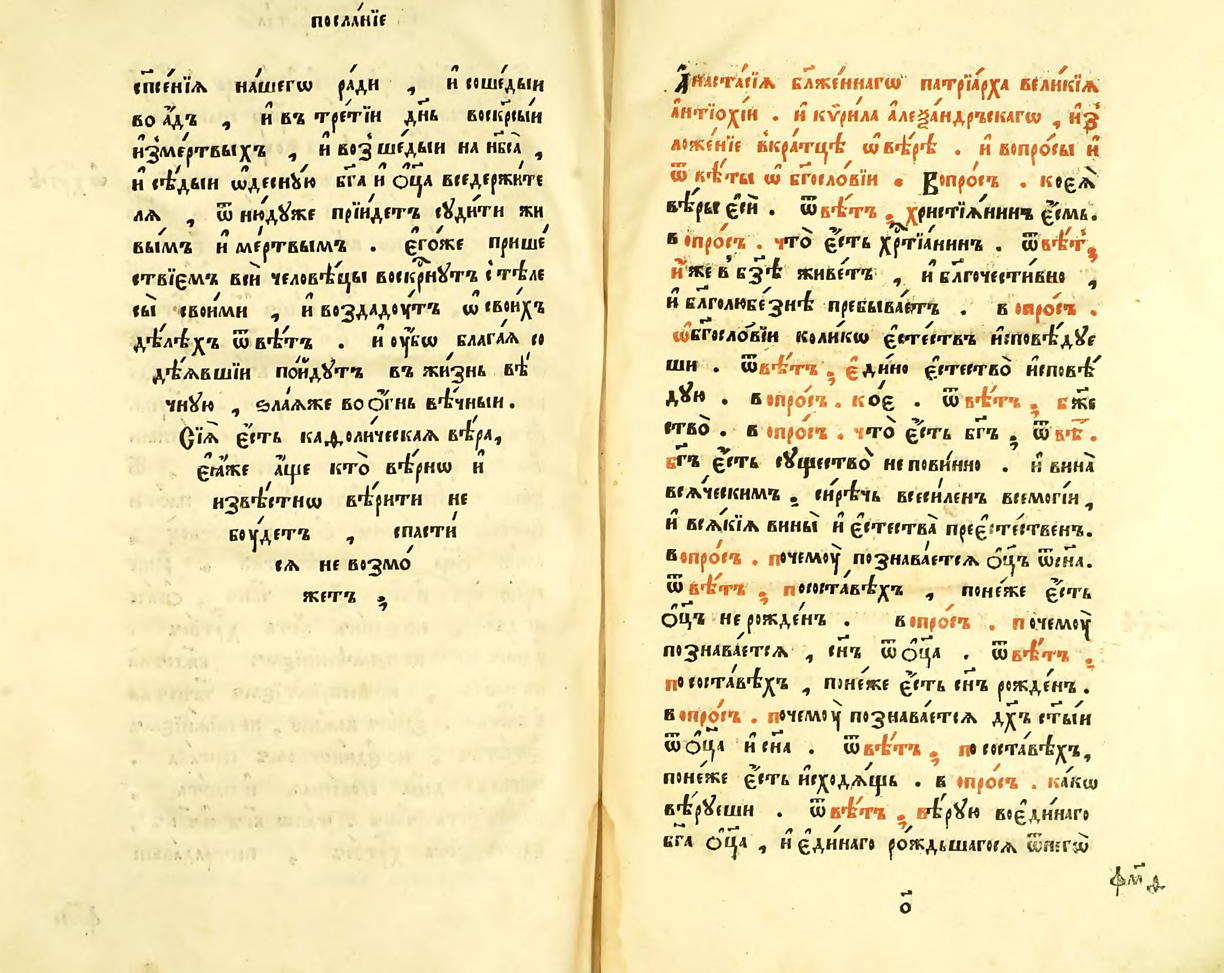 посла́нїе
сп҃се́нїѧ на́шегѡ ра́ди , и҆ соше́дыи
во а҆́дъ , и҆ въ тре́тїи дн҃ь воскр҃сыи
и҆зме́ртвыхъ , и҆ воз̾ше́дыи на нб҃са̀ ,
и҆ сѣ́дыи ѡ҆десну́ю бг҃а и҆ ѻ҆ц҃а вседержи́те
лѧ , ѿ ню́дуже прїи́детъ суди́ти жи
вы́мъ и҆ ме́ртвымъ . є҆го́же прише́
ствїемъ всѝ человѣ́цы воскр҃нутъ с̾ тѣлесы̀
свои́ми , и҆ воздаду́тъ ѡ҆ свои́хъ
дѣ́лѣхъ ѿвѣ́тъ . и҆ оу҆́бѡ блага́ѧ со
дѣ́ѧвшїи по́йдутъ въ жи́знь вѣ́
чную , ѕла́ѧже во ѻ҆́гнь вѣ́чныи .
Сїѧ̀ є҆́сть каѳоли́ческаѧ вѣ́ра,
є҆ѧ́же а҆́ще кто̀ вѣ́рнѡ и҆
извѣ́стнѡ вѣ́рити не
бо́удетъ , спасти́
сѧ не возмо́
жетъ ;
А҆наста́сїѧ бл҃же́ннагѡ патрїа́рха вели́кїѧ
а҆нтїохі́и . и҆ кѷри́ла а҆леѯа́ндръскагѡ , и҆з̾
ложе́нїе вкра́тцѣ ѡ҆ вѣ́рѣ . и҆ вопро́сы и҆
ѿвѣ́ты ѡ҆ бг҃осло́вїи . Вопро́съ . коеѧ̀
вѣ́ры є҆сѝ . ѿвѣ́тъ ; христїѧ́нинъ є҆́смь.
вопро́съ . что̀ є҆́сть хр҃тїа́нинъ . ѿвѣ́тъ;
и҆́же в̾ бз҃ѣ живе́тъ , и҆ бл҃гочести́вно ,
и҆ бл҃голюбе́знѣ пребыва́етъ . вопро́съ .
ѡ҆бг҃осло́вїи коли́кѡ є҆сте́ствъ и҆сповѣ́дуе
ши . ѿвѣ́тъ ; є҆ди́но є҆стество̀ и҆сповѣ́
дую . вопро́съ . ко́е . ѿвѣ́тъ ; бж҃е
ство̀ . вопро́съ . что̀ є҆́сть бг҃ъ ; ѿвѣ́.
бг҃ъ є҆́сть существо̀ непови́нно . и҆ вина̀
всѧ́ческимъ ; си́рѣчь всеси́ленъ всемогі́и ,
и҆ всѧ́кїѧ вины̀ и҆ є҆стества̀ преє҆сте́ственъ.
вопро́съ . почемоу̀ познава́етсѧ ѻ҆ц҃ъ ѿ сн҃а.
ѿвѣ́тъ ; пососта́вѣхъ , поне́же є҆́сть
ѻ҆ц҃ъ нерожде́нъ . вопро́съ . почемоу̀
познава́етсѧ , сн҃ъ ѿ ѻ҆ц҃а . ѿвѣ́тъ ;
пососта́вѣхъ , поне́же є҆́сть сн҃ъ рожде́нъ .
вопро́съ . почемоу̀ познава́етсѧ дх҃ъ ст҃ыи
ѿ ѻ҆ц҃а и҆ сн҃а . ѿвѣ́тъ ; пососта́вѣхъ,
поне́же є҆́сть и҆сходѧ́щь . вопро́съ . ка́кѡ
вѣ́руеши . ѿвѣ́тъ ; вѣ́рую воеди́наго
бг҃а ѻ҆ц҃а , и҆ є҆ди́наго ро́ждьшагосѧ ѿнегѡ̀
о҃